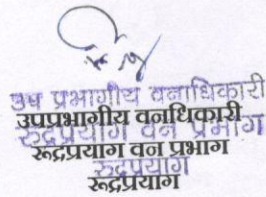 उप प्रभागीय वनाधिकारी
उपप्रभागीय वनधिकारी
रुद्रप्रयाग वन प्रभाग
रूद्रप्रयाग वन प्रभाग
रुद्रप्रयाग
रूद्रप्रयाग